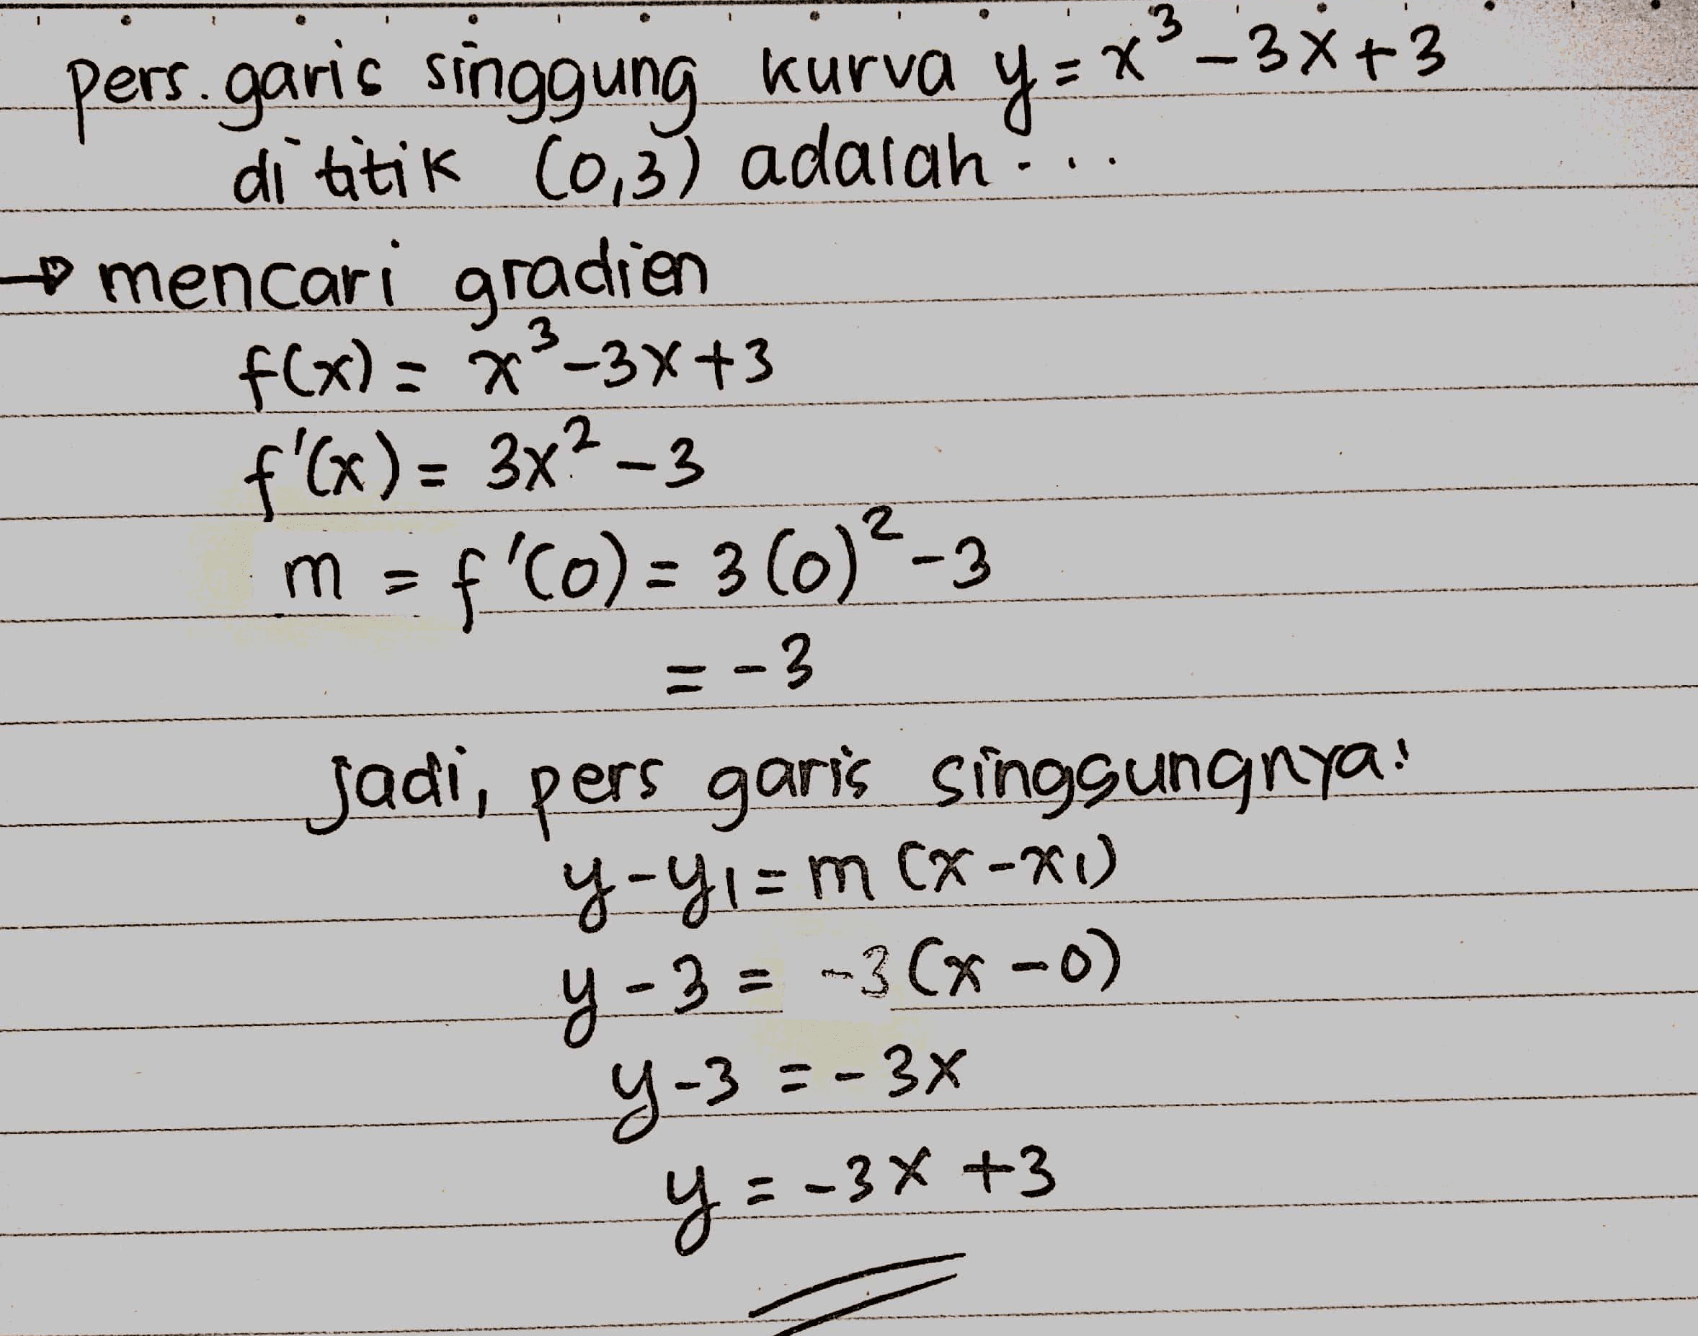 pers. garis singgung kurva y = x³ - 3x + 3
di titik (0,3) adalah ...
→ mencari gradien
f(x) = x³ - 3x + 3
f'(x) = 3x² - 3
m = f'(0) = 3(0)² - 3
= -3
Jadi, pers garis singgungnya:
y - y₁ = m (x - x₁)
y - 3 = -3 (x - 0)
y - 3 = -3x
y = -3x + 3